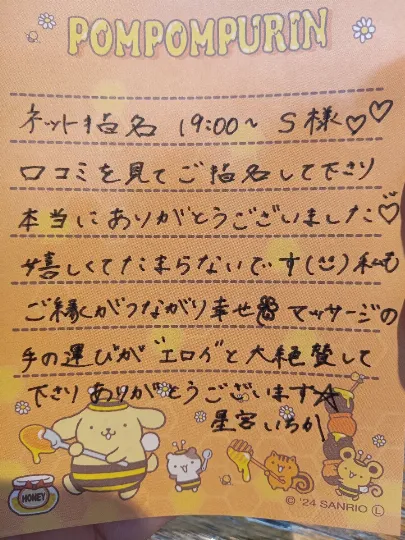 POMPOMPURIN
ネット指名 19:00~ S様♡♡
口コミを見てご指名して下さり
本当にありがとうございました♡
嬉しくてたまらないです(
私も
ご縁がつながり幸せ
マッサージの
手の運びが"エロイ"と大絶賛して
下さりありがとうございます☆
星宮いちか
HONEY
© '24 SANRIO Ⓛ